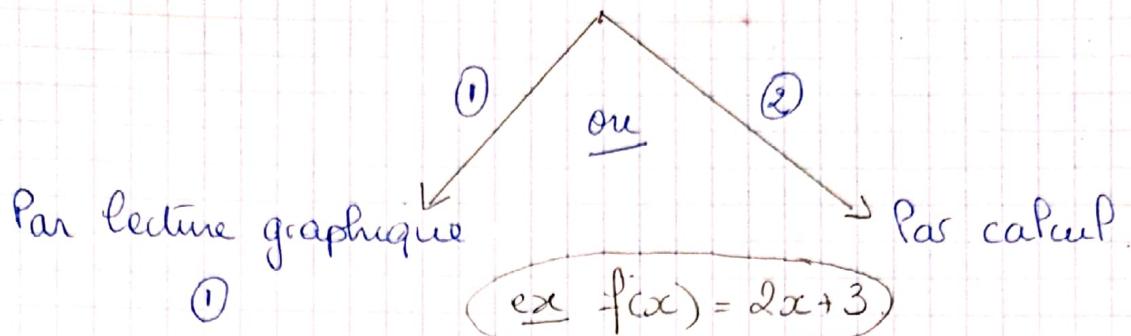 ① ②
ou
Par lecture graphique Par calcul
① ex f(x) = 2x+3